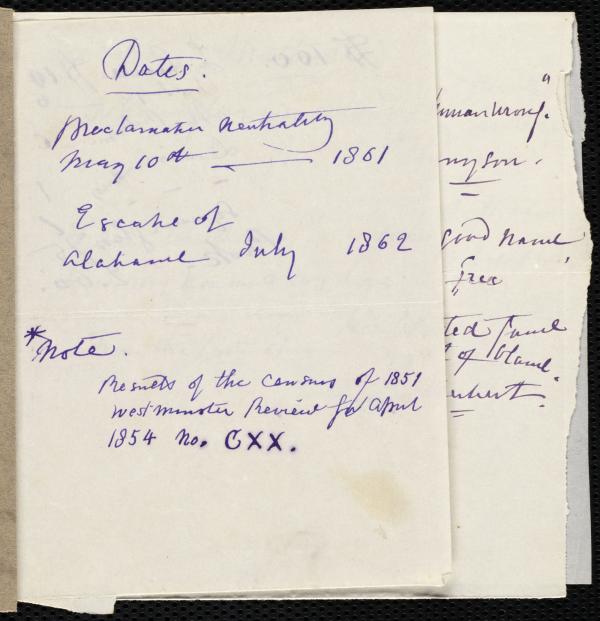 Dates.
Proclamation Neutrality
May 10th — 1861
Escape of
Alabama July 1862
*Note.
Results of the census of 1851
Westminster Review for April
1854 No. CXX.
"
human wrong.
nyson.
good name,
free
ted fame
of blame"
erbert.